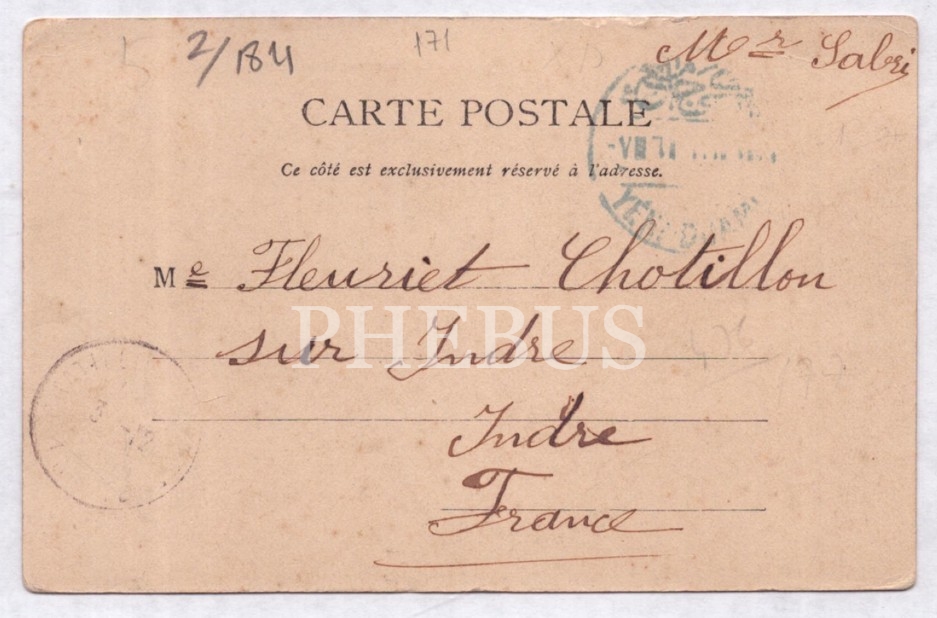 2/184
171
Mer Sabri
CARTE POSTALE
Ce côté est exclusivement réservé à l'adresse.
YENI DJAMI
Me Fleuriet Chotillon
sur Indre
PHEBUS
Indre
France